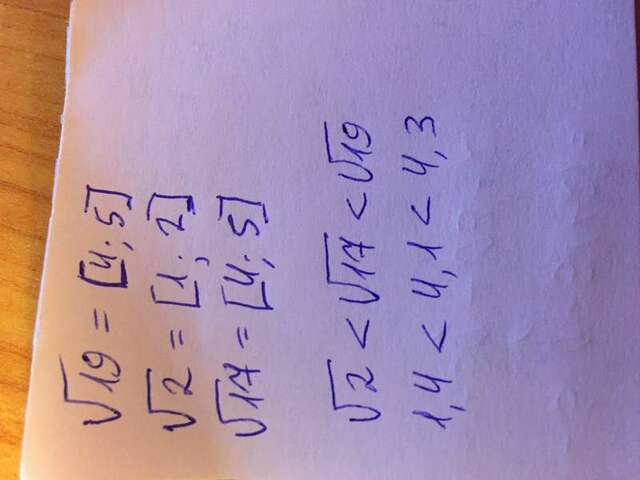 √19 = [4; 5]
√2 = [1; 2]
√17 = [4; 5]
√2 < √17 < √19
1,4 < 4,1 < 4,3